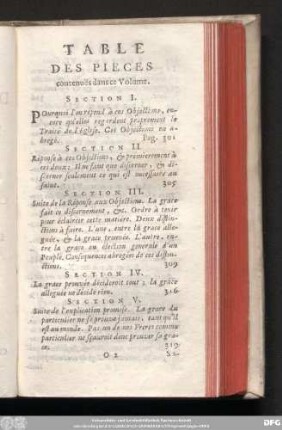 TABLE
DES PIECES
contenuës dans ce Volume.
SECTION I.
Pourquoi l'on répond à ces Objections, en-
core qu'elles regardent proprement le
Traité de l'Eglise. Ces Objections en a-
bregé. Pag. 301
SECTION II.
Réponse à ces Objections, & premierement à
ces deux; Il ne faut que discerner, & di-
scerner seulement ce qui est necessaire au
salut. 305
SECTION III.
Suite de la Réponse aux Objections. La grace
fait ce discernement, &c. Ordre à tenir
pour éclaircir cette matiere. Deux distin-
ctions à faire. L'une, entre la grace alle-
guée, & la grace prouvée. L'autre, en-
tre la grace ou élection generale d'un
Peuple. Consequences abregées de ces distin-
ctions. 309
SECTION IV.
La grace prouvée décideroit tout; la grace
alleguée ne décide rien. 316
SECTION V.
Suite de l'explication promise. La grace du
particulier ne se prouve jamais, tant qu'il
est au monde. Pas un de nos Freres comme
particulier ne sçauroit donc prouver sa gra-
ce. 319
O 2